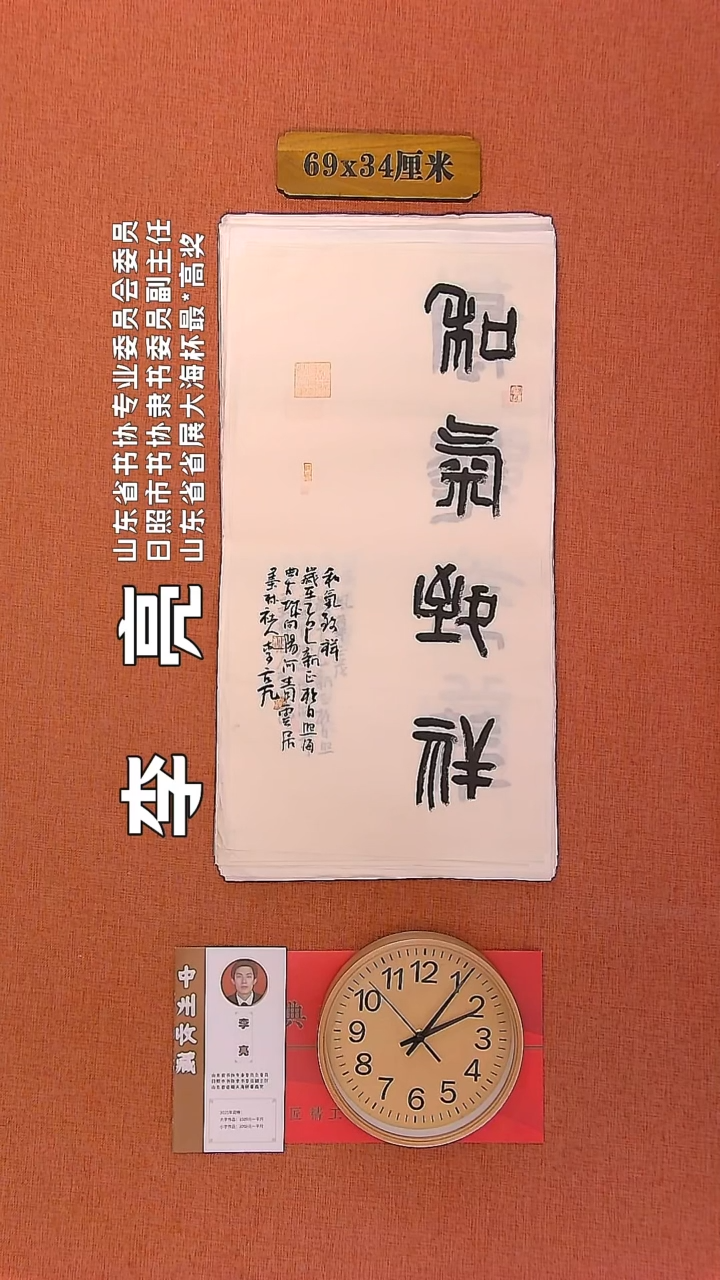 69x34厘米
山东省书协专业委员会委员
日照市书协隶书委员副主任
山东省省展大海杯最*高奖
李 亮
和氣致祥
和氣致祥
歲在乙巳新正於日照海
曲大城向陽河青雲居
墨林社人李亮
藏友生中
李 亮
典
匠精工
12
1
2
3
4
5
6
7
8
9
10
11